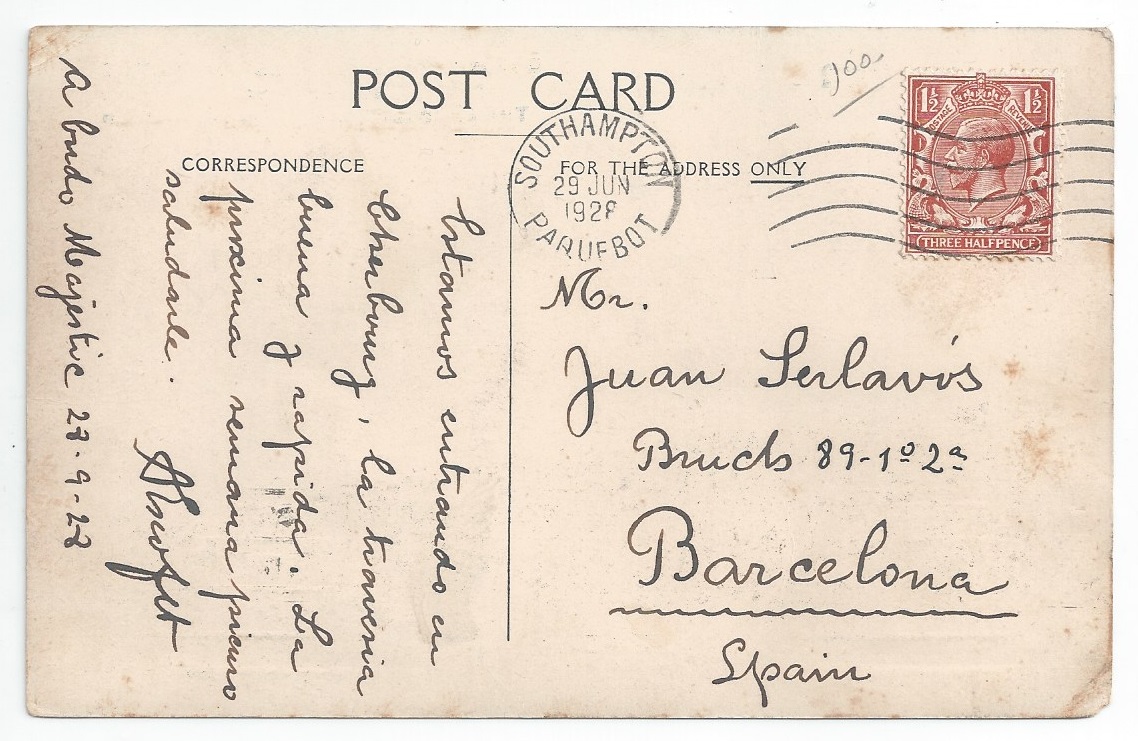 POST CARD
CORRESPONDENCE
FOR THE ADDRESS ONLY
900
SOUTHAMPTON
29 JUN
1928
PAQUEBOT
1½ 1½
POSTAGE REVENUE
THREE HALFPENCE
Mr.
Juan Serlavós
Bruch 89-1º 2ª
Barcelona
Spain
Estamos entrando en
Cherbourg, la travesia
buena y rapida. La
proxima semana pienso
saludarle.
A bordo Majestic 28-9-28